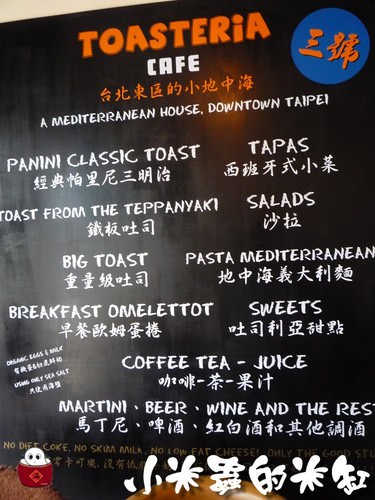 TOASTERiA
CAFE
三號
台北東區的小地中海
A MEDITERRANEAN HOUSE, DOWNTOWN TAIPEI
PANINI CLASSIC TOAST
經典帕里尼三明治
TAPAS
西班牙式小菜
TOAST FROM THE TEPPANYAKI
鐵板吐司
SALADS
沙拉
BIG TOAST
重量級吐司
PASTA MEDITERRANEAN
地中海義大利麵
BREAKFAST OMELETTOT
早餐歐姆蛋捲
SWEETS
吐司利亞甜點
ORGANIC EGGS & MILK
USING ONLY SEA SALT
只使用海鹽
COFFEE TEA - JUICE
咖啡-茶-果汁
MARTINI、BEER、WINE AND THE REST
馬丁尼、啤酒、紅白酒和其他調酒
NO DIET COKE, NO SKIM MILK, NO LOW FAT CHEESE! ONLY THE GOOD
小米蟲的米缸